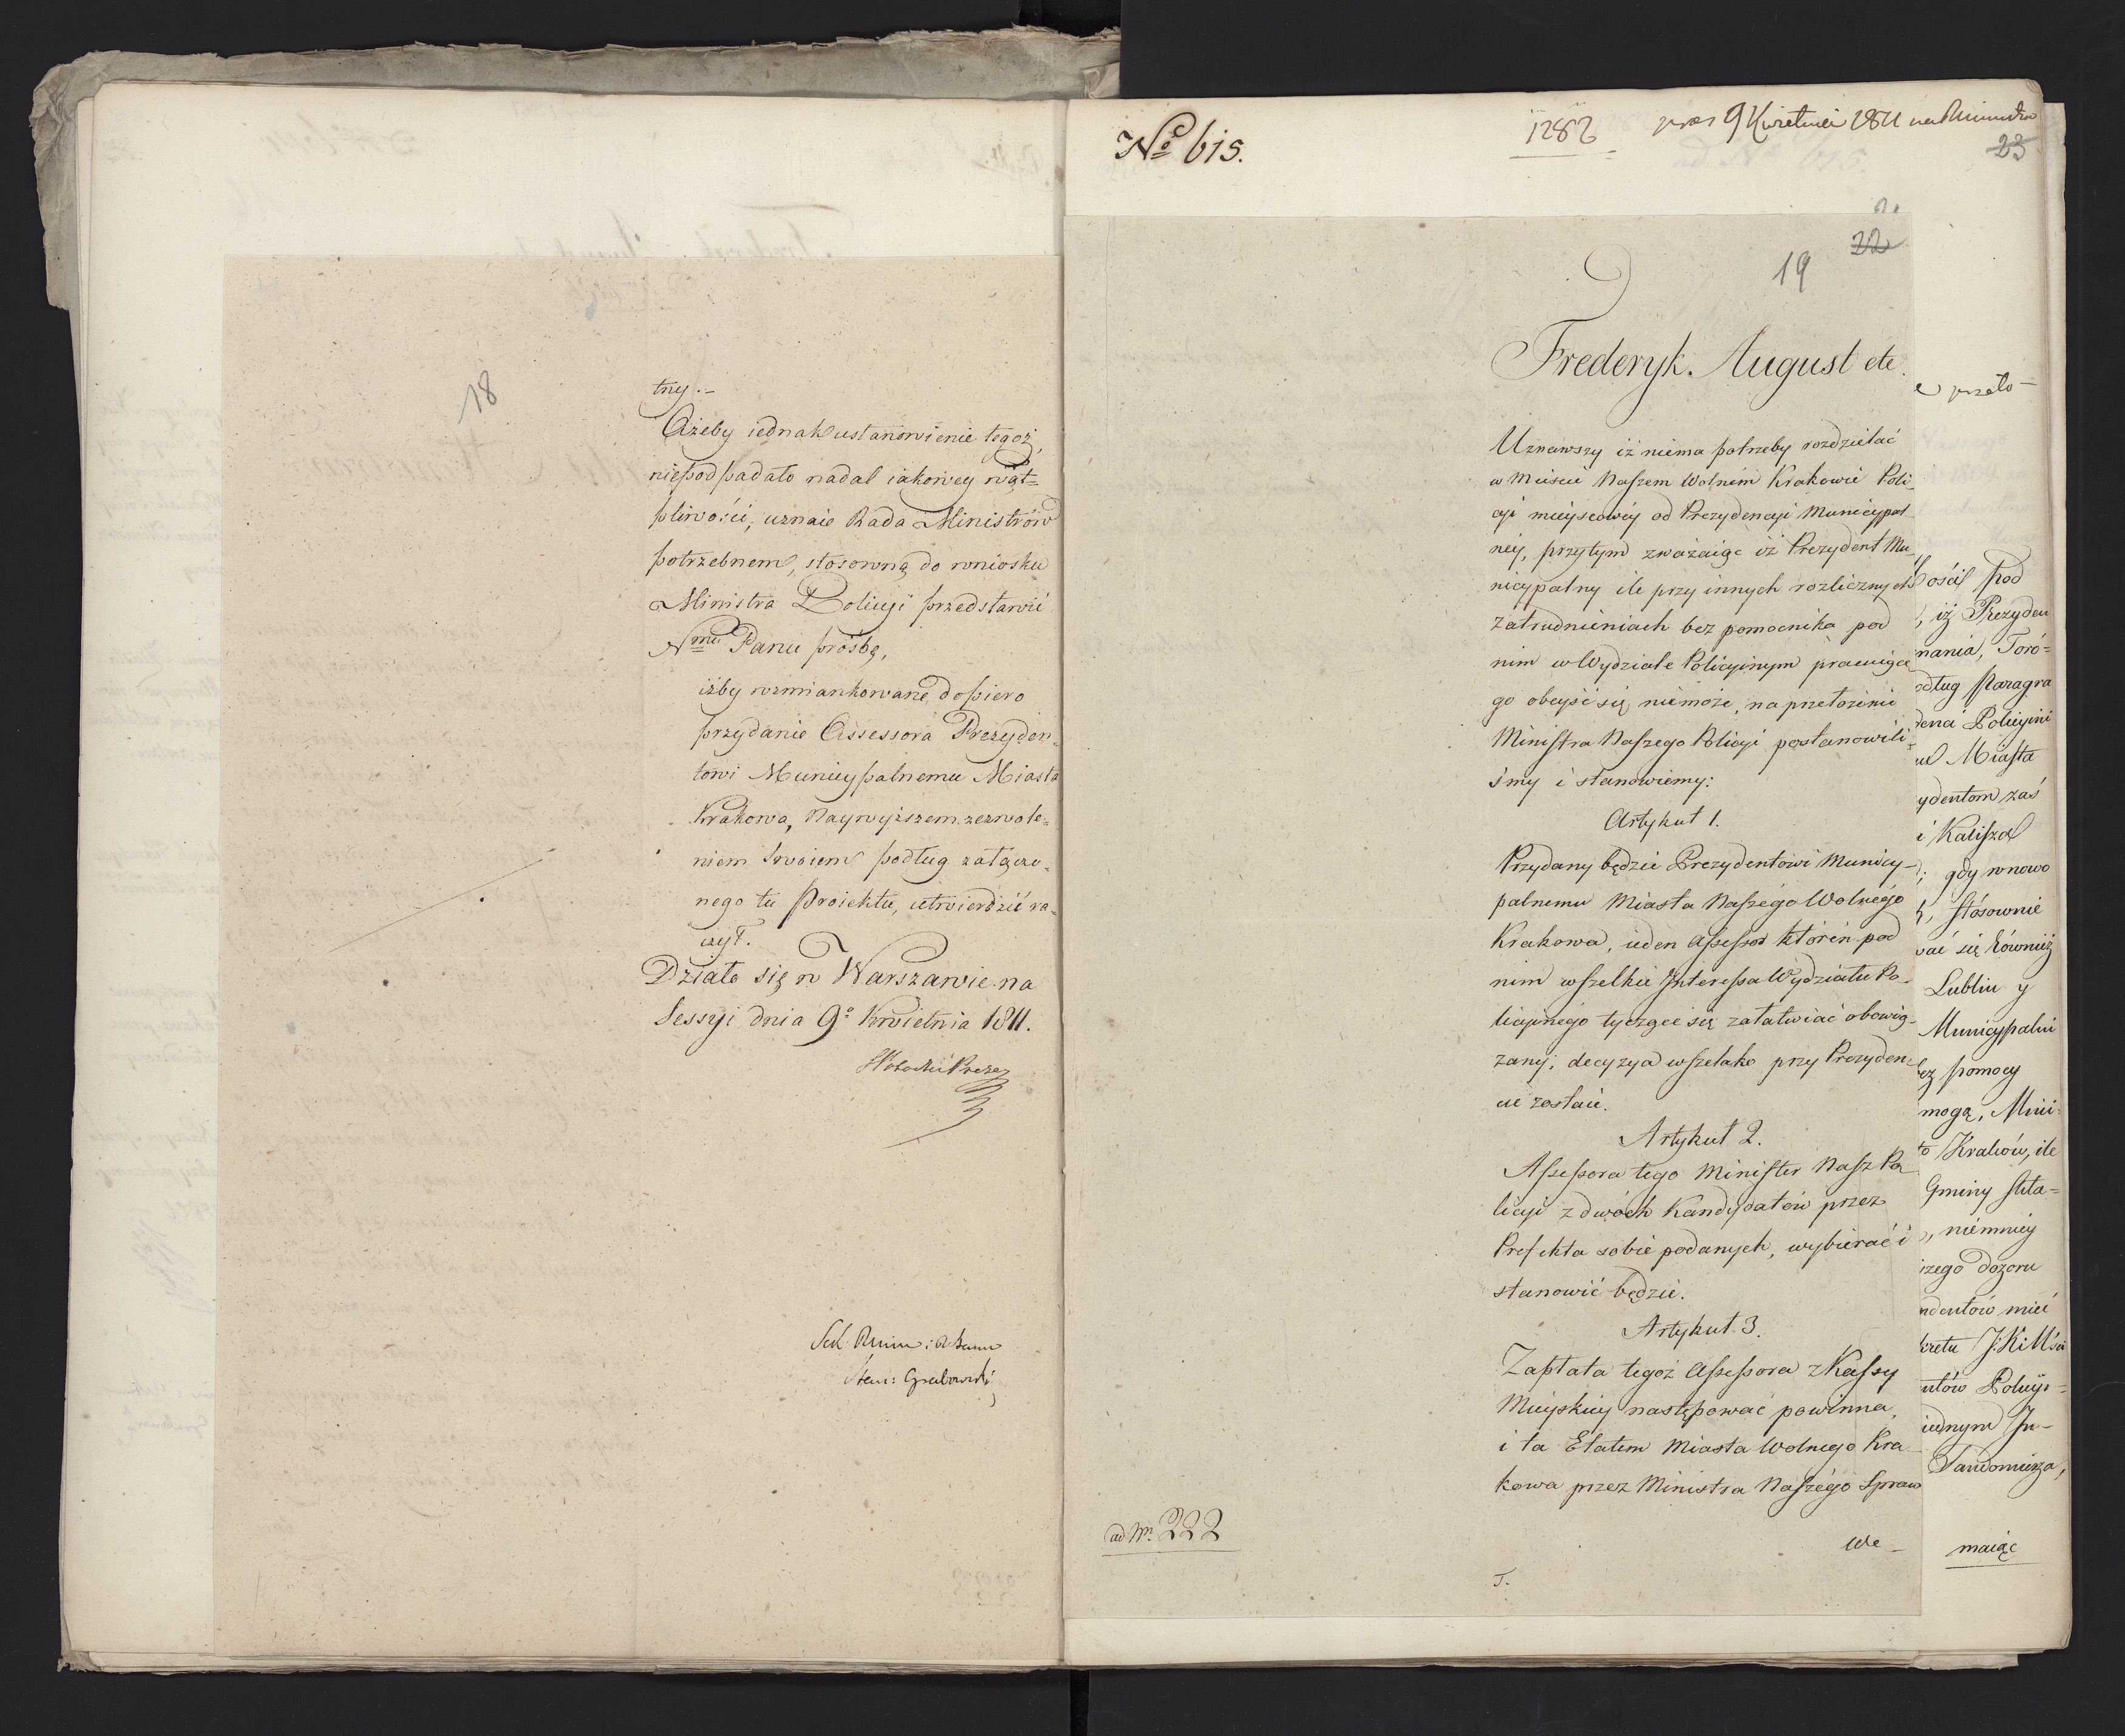 18
tny.-
Ażeby iednak ustanowienie tegoż,
niepodpadało nadal iakowey wąt=
pliwości, uznaie Rada Ministrów
potrzebnem, stosowną do wniosku
Ministra Policyi przedstawić
Nmu Panu prośbę,
iżby wzmiankowane dopiero
przydanie Assessora Prezyden=
towi Municypalnemu Miasta
Krakowa, Naywyższem zezwole=
niem Swoiem podług załączo=
nego tu Proiektu, utwierdzić ra=
czył.
Działo się w Warszawie na
Sessyi dnia 9o Kwietnia 1811.
Prezes
Sek
Stan: Grabowski
No 615.
1282
9 Kwietnia 1811
23
22
19
Frederyk August etc.
Uznawszy iż niema potrzeby rozdzielać
w Mieście Naszem Wolném Krakowie Poli-
cyi mieyscowéy od Prezydencyi Municypal-
néy, przytym zważaiąc iż Prezydent Mu-
nicypalny ile przy innych rozlicznych
zatrudnieniach bez pomocnika pod
nim w Wydziale Policyinym pracuiące
go obeyść się niemoże, na przełożenie
Ministra Naszego Policyi postanowili-
śmy i stanowiemy:
Artykuł 1.
Przydany będzie Prezydentowi Municy-
palnemu Miasta Naszego Wolnégo
Krakowa, ieden Assessor którén pod
nim wszelkie Interessa Wydziału Po-
licyinégo tyczące się załatwiać obowią-
zany; decyzya wszelako przy Prezyden-
cie zostaie.
Artykuł 2.
Assessora tego Minister Nasz Po-
licyi z dwóch Kandydatów przez
Prefekta sobie podanych, wybierać i
stanowić będzie.
Artykuł 3.
Zapłata tegoż Assessora z Kassy
Mieyskiey następować powinna,
i ta Etatem Miasta Wolnego Kra-
kowa przez Ministra Naszégo Spraw
We-
ad Nr. 222
T.
przeło-
ości pod
, iż Prezyden
nania, Toró=
odług Paragra
denci Policyini
Miasta
ydentom zaś
i Kalisza
; gdy wnowo
, stósownie
wać się również
Lublin y
Municypalni
bez pomocy
mogą, Mini=
to Kraków, ile
Gminy skła=
, niémniéy
szego dozoru
ydentów mieć
kretu J: K: Mści
utów Policyi=
iednym In-
Sandomierza,
maiąc